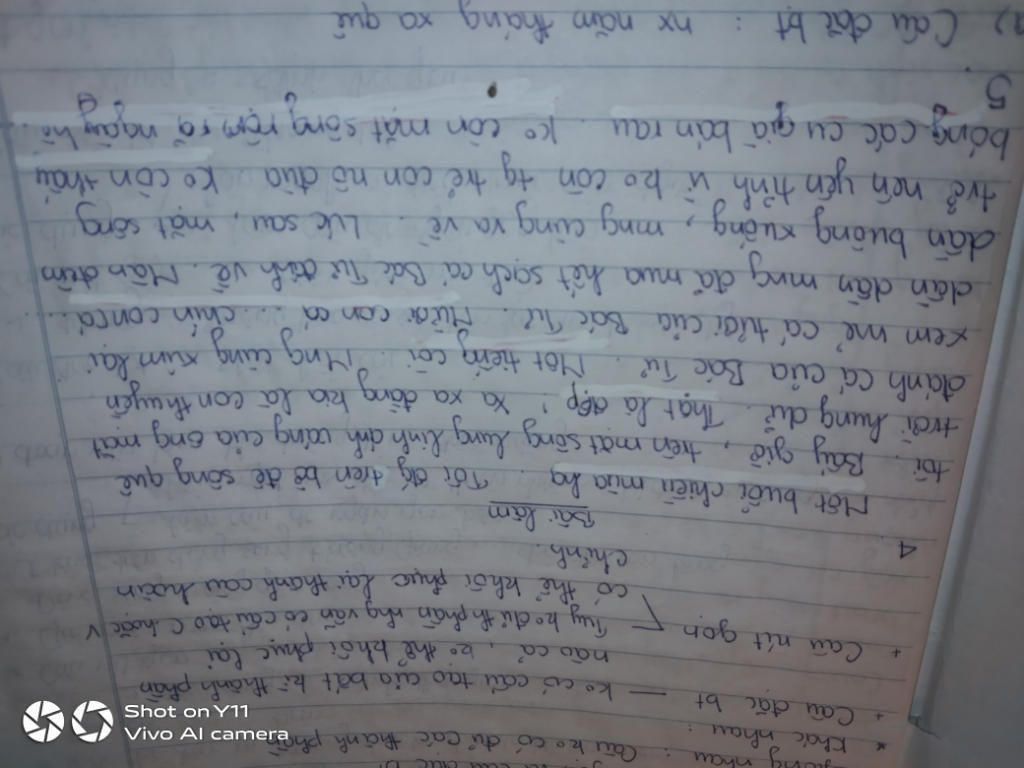 giống nhau : Câu ko có đủ các thành phần
* Khác nhau :
+ Câu đặc bt — ko có cấu tạo của bất kì thành phần
nào cả, ko thể khôi phục lại
+ Câu rút gọn [ Tuy ko đủ th phần nhg vẫn có cấu tạo C hoặc V
có thể khôi phục lại thành câu hoàn
chỉnh.
4
Bài làm
Một buổi chiều mùa hạ. Tôi đg trên bờ đê sông quê
tôi. Bấy giờ, trên mặt sông lung linh ánh vàng của ông mặt
trời hung dữ. Thật là đẹp! Xa xa đằng kia là con thuyền
đánh cá của Bác Tư. Một tiếng còi. Mng cùng xúm lại
xem mẻ cá tươi của Bác Tư. Mười con cá ... chín con cá ...
dần dần mng đã mua hết sạch cá Bác Tư đánh về. Màn đêm
dần buông xuống, mng cùng ra về. Lúc sau, mặt sông
trở nên yên tĩnh vì ko còn tg trẻ con nô đùa. Ko còn thấy
bóng các cụ già bán rau. Ko còn mặt sông rộm rã ngày hè.
5.
a) Câu đặc bt : nx năm tháng xa quê